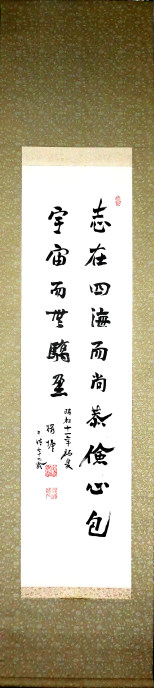 志在四海而尚恭儉心包
宇宙而無驕盈
昭和十一年初夏